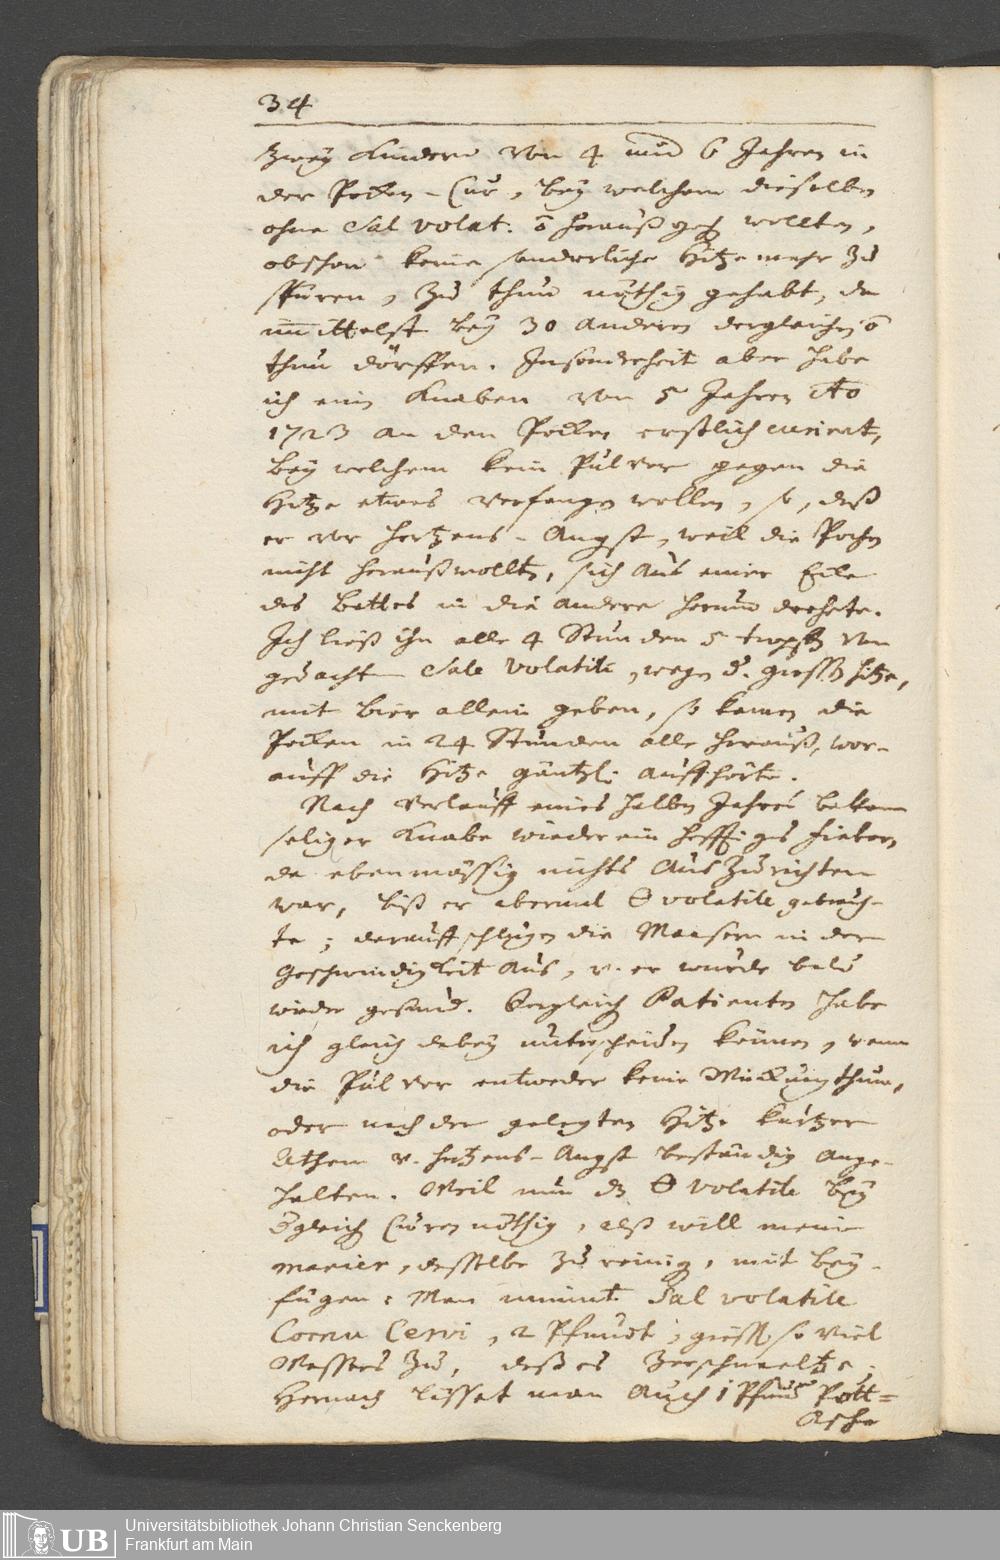 34
zweÿ Kindern von 4 und 6 Jahren in
der Pocken-Cur, beÿ welchem dieselben
ohne Sal volat: ō herauß gehē wollten,
obschon keine sonderliche Hitze mehr zu
spüren, zu thun nöthig gehabt, da
im̄ittelst beÿ 30 anderen dergleichen ō
thun dörffen. Insonderheit aber habe
ich ein Knaben von 5 Jahren Ao
1723 an den Pocken erstlich curirt,
beÿ welchem kein Pulver gegen die
Hitze etwas verfangen wollen, so, daß
er vor Hertzens-Angst, weil die Pocken
nicht herauß wollten, sich aus einer Ecke
des Bettes in die andere herum drehete.
Ich ließ ihn alle 4 Stunden 5 tropffē von
gedachtem Sale Volatili, wegen d. grossē Hitze,
mit Bier allein geben, so kamen die
Pocken in 24 Stunden alle herauß, wor-
auff die Hitze gäntzl: auffhörte.
Nach Verlauff eines halben Jahres bekam
seliger Knabe wieder ein hefftiges Fieber,
da ebenmässig nichts auszurichten
war, biß er abermal ⊖ volatile gebrauch-
te; darauff schlugen die Masern in der
Geschwindigkeit aus, u. er wurde bald
wieder gesund. Dergleich Patienten habe
ich gleich dabeÿ unterscheiden können, wenn
die Pulver entweder keine Würckung thun,
oder nach der gelegten Hitze kurtzer
Athem u. Hertzens-Angst beständig ange-
halten. Weil nun dz ⊖ volatile beÿ
dgleich Curen nöthig, alß will meine
manier, dasselbe zu reinigē, mit beÿ-
fügen: Man nim̄t Sal volatile
Cornu Cervi, 2 Pfundt, giesse so viel
Wasser zu, daß es zerschmeltze.
Hernach lässet man auch 1 Pfund Pott=
Asche
Universitätsbibliothek Johann Christian Senckenberg
Frankfurt am Main
UB